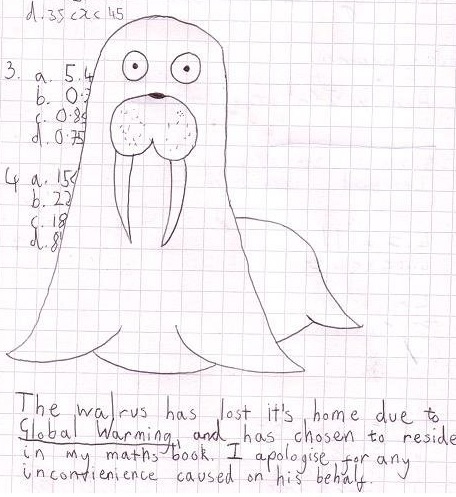 d. 35<x<45
3. a. 5.4
b. 0.
c. 0.8
d. 0.75
4 a. 15
b. 22
c. 18
d. 8
The walrus has lost it's home due to
Global Warming, and has chosen to reside
in my maths book. I apologise for any
inconvienience caused on his behalf.